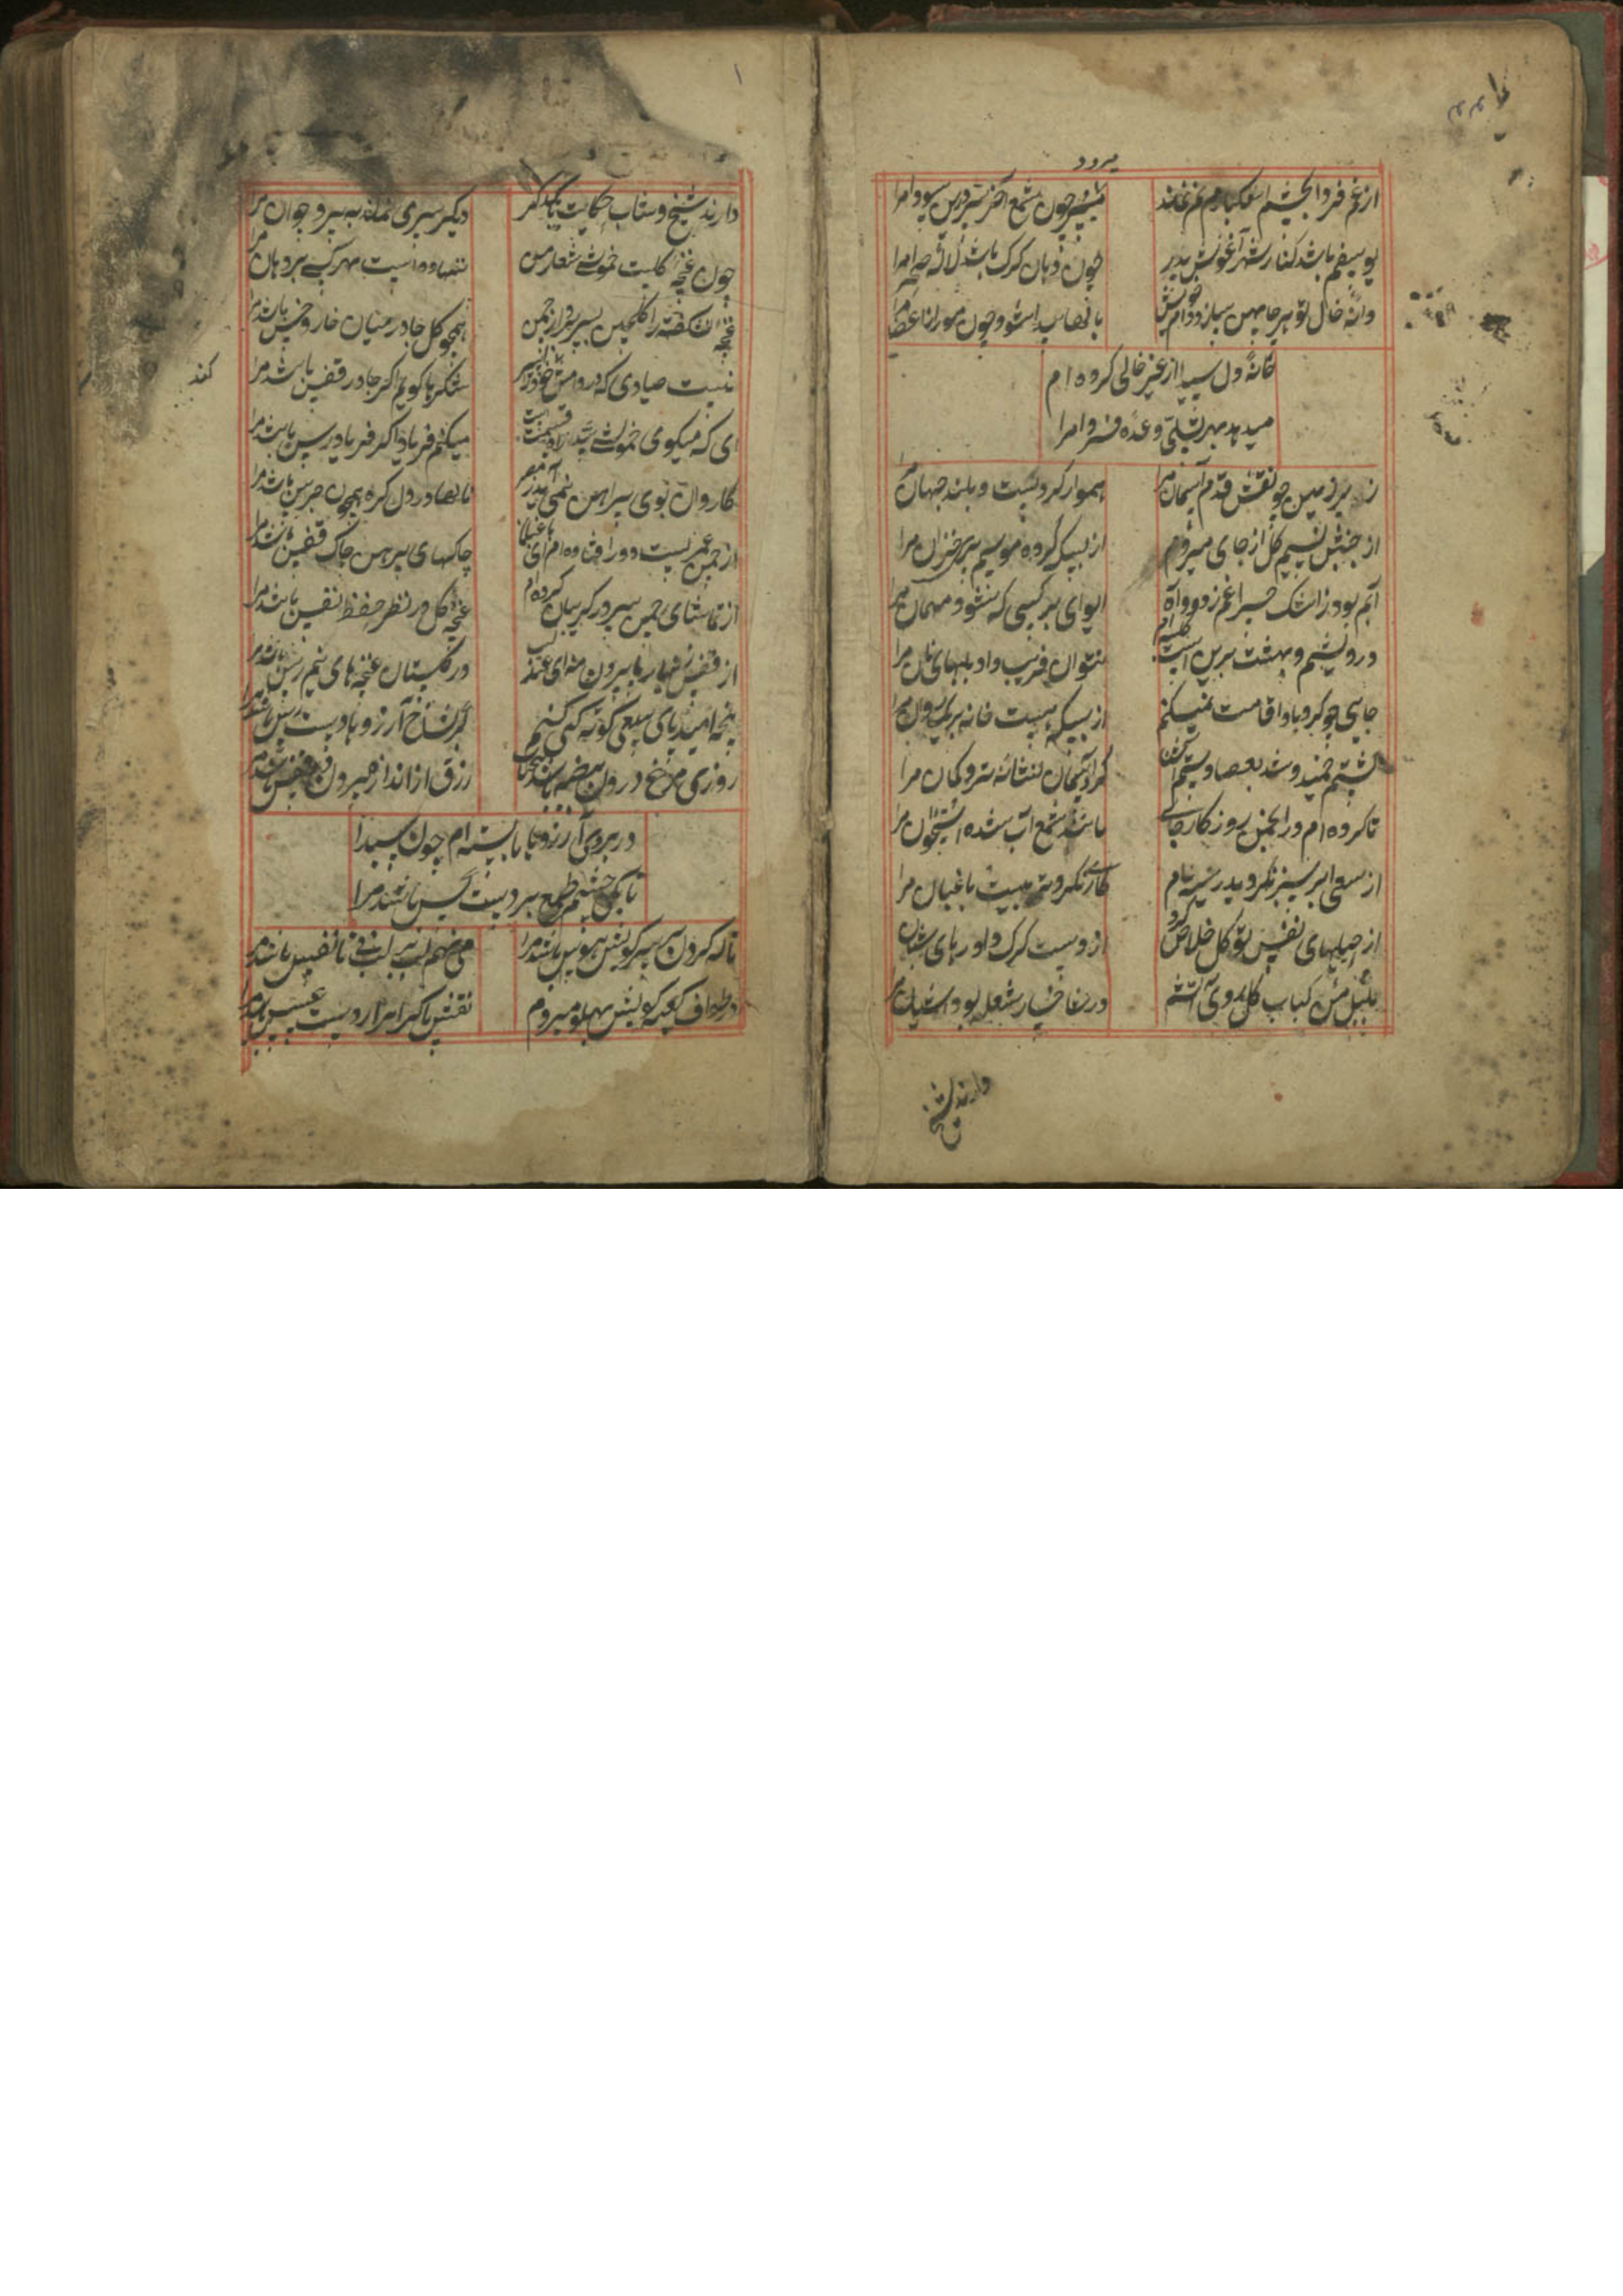 میرود
از غم فردا بچشم اشکبارم نم نماند میشود چون شمع آخر سودا مرا
یوسفم باشد کنار شهر آغوش پدر چون دهان گرگ باشد لاله صحرا مرا
دانه خال تو هر جا پهن سازد دام خویش بال پیدا شود چون مور از اعضا مرا
خانه دل سیدا از غیر خالی کرده ام
میدهد بهر تسلی وعده فردا مرا
زیر زمین چو نقش قدم آسمان مرا هموار کرد پست و بلند جهان مرا
از جنبش نسیم گل از جای میروم از بسکه کرده موسم پیری خزان مرا
آبم بود ز اشک چراغم ز دود آه ای وای بر کسی که شود میهمان مرا
درویشم و بهشت برین است کلبه ام نتوان فریب داد بلبهای نان مرا
جایی چو گردباد اقامت نمیکنم از بسکه هست خانه بریگ روان مرا
پشتم خمید و شد بعصا دستم آشنا کرد آسمان نشانه تیر و کمان مرا
تا کرده ام در انجمن روزگار جای مانند شمع آب شده استخوان مرا
از سعی ابر سبز نگردید ریشه ام کاری نکرد تربیت باغبان مرا
از حیلهای نفس توکل خلاص کرد از دست گرگ داد رهای شبان مرا
بلبل منش کباب گل روی آتشم در شاخسار شعله بود آشیان مرا
دارند شیخ
دارند شیخ و شاب حکایت بیکدگر دیگر سری نماند به پیر و جوان مرا
چون غنچه گلیست خموشی شعار من ننهاده است مهر کسی بر دهان مرا
غنچه نشکفته را گلچین برد از چمن همچو گل جا در میان خار و خس باشد مرا
نیست صیادی که در دامش شکرها گویم اگر جا در قفس باشد مرا
کند
ای که میگویی خموشی سیدا میکنم فریاد اگر فریادرس باشد مرا
کاروان بوی پیراهن نمی آید ز مصر نالها در دل گره همچون جرس باشد مرا
از چمن عمریست دور افتاده ام ای باغبان چاکهای پیرهن چاک قفس باشد مرا
از تماشای چمن سر در گریبان کرده ام غنچه گل در نظر حفظ نفس باشد مرا
از قفس زنهار پا بیرون منه ای عندلیب در گلستان غنچه های نیم رس باشد مرا
پنجه امید پای سعی کوته کی کنم گر بشاخ آرزوها دست رس باشد مرا
روزی مرغ درون بیضه باشد رزق از انداز بیرون قفس باشد مرا
در بروی آرزوها بسته ام چون سیدا
تا بکی چشم طمع بر دست کس باشد مرا
ناله کردن بر سر کویش هوس باشد مرا می نهم لب بر لب نی تا نفس باشد مرا
در طواف کعبه کویش بپهلو میروم نقش پا گیرا تر از دست عسس باشد مرا